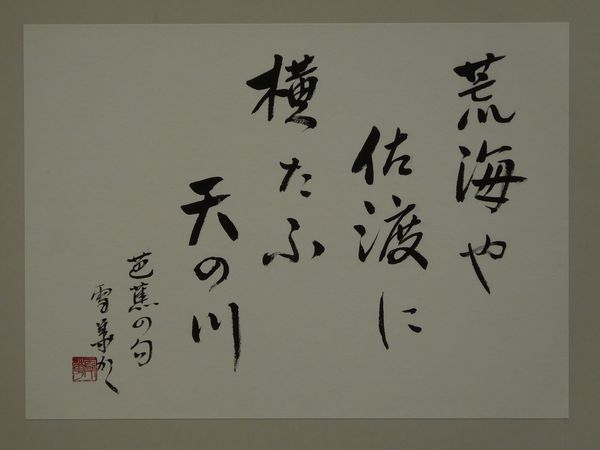 荒海や
佐渡に
横たふ
天の川
芭蕉の句
雪華かく